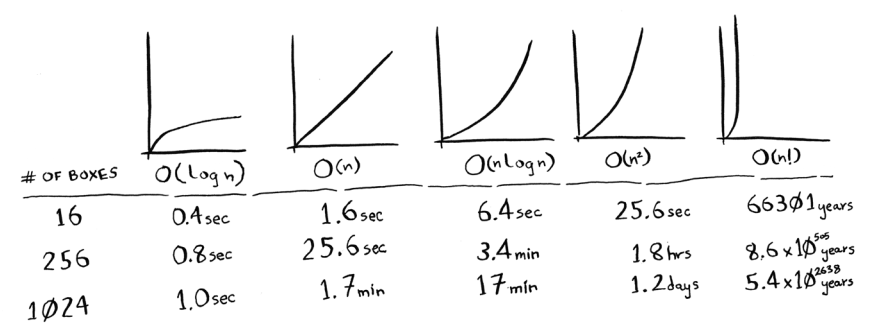 # OF BOXES O(log n) O(n) O(n log n) O(n²) O(n!)
16 0.4sec 1.6sec 6.4sec 25.6sec 66301years
256 0.8sec 25.6sec 3.4min 1.8hrs 8.6x10⁵⁰⁵years
1024 1.0sec 1.7min 17min 1.2days 5.4x10²⁶³⁸years